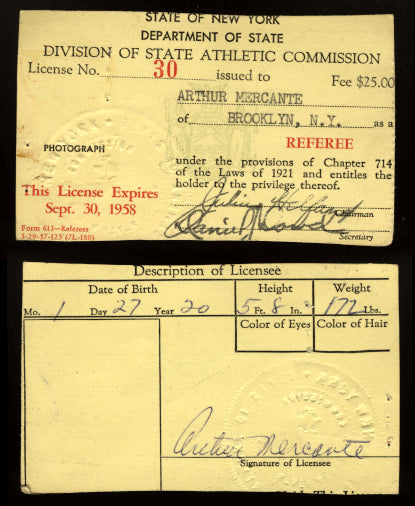 STATE OF NEW YORK
DEPARTMENT OF STATE
DIVISION OF STATE ATHLETIC COMMISSION
License No. 30 issued to Fee $25.00
ARTHUR MERCANTE
of BROOKLYN, N.Y. as a
REFEREE
PHOTOGRAPH
under the provisions of Chapter 714
of the Laws of 1921 and entitles the
holder to the privilege thereof.
This License Expires
Sept. 30, 1958
Julius Helfand
Chairman
Form 613—Referees
3-29-57-125 (7L-180)
Daniel
Secretary
Description of Licensee
Date of Birth Height Weight
Mo. 1 Day 27 Year 20 5 Ft. 8 In. 172 Lbs.
Color of Eyes Color of Hair
Arthur Mercante
Signature of Licensee